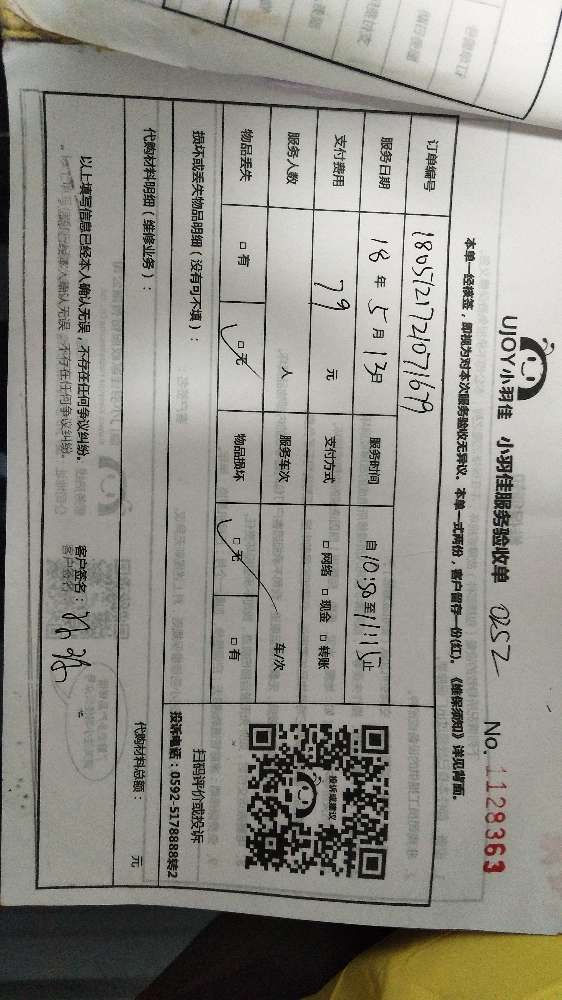 UJOY小羽佳 小羽佳服务验收单 No. 1128363
本单一经接签，即视为对本次服务验收无异议。本单一式两份，客户留存一份(红)。《维保须知》详见背面。
订单编号 1805121721071679
服务日期 18 年 5 月 13 日 服务时间 自 10:50 至 11:15 止
支付费用 79 元 支付方式 □ 网络 □ 现金 □ 转账
服务人数 人 服务车次 车/次
物品丢失 □ 有 □ 无 物品损坏 □ 无 □ 有
投诉或建议
扫码评价或投诉
投诉电话：0592-5178888转2
损坏或丢失物品明细（没有可不填）：
代购材料明细（维修业务）： 代购材料总额： 元
以上填写信息已经本人确认无误，不存在任何争议纠纷。 客户签名：